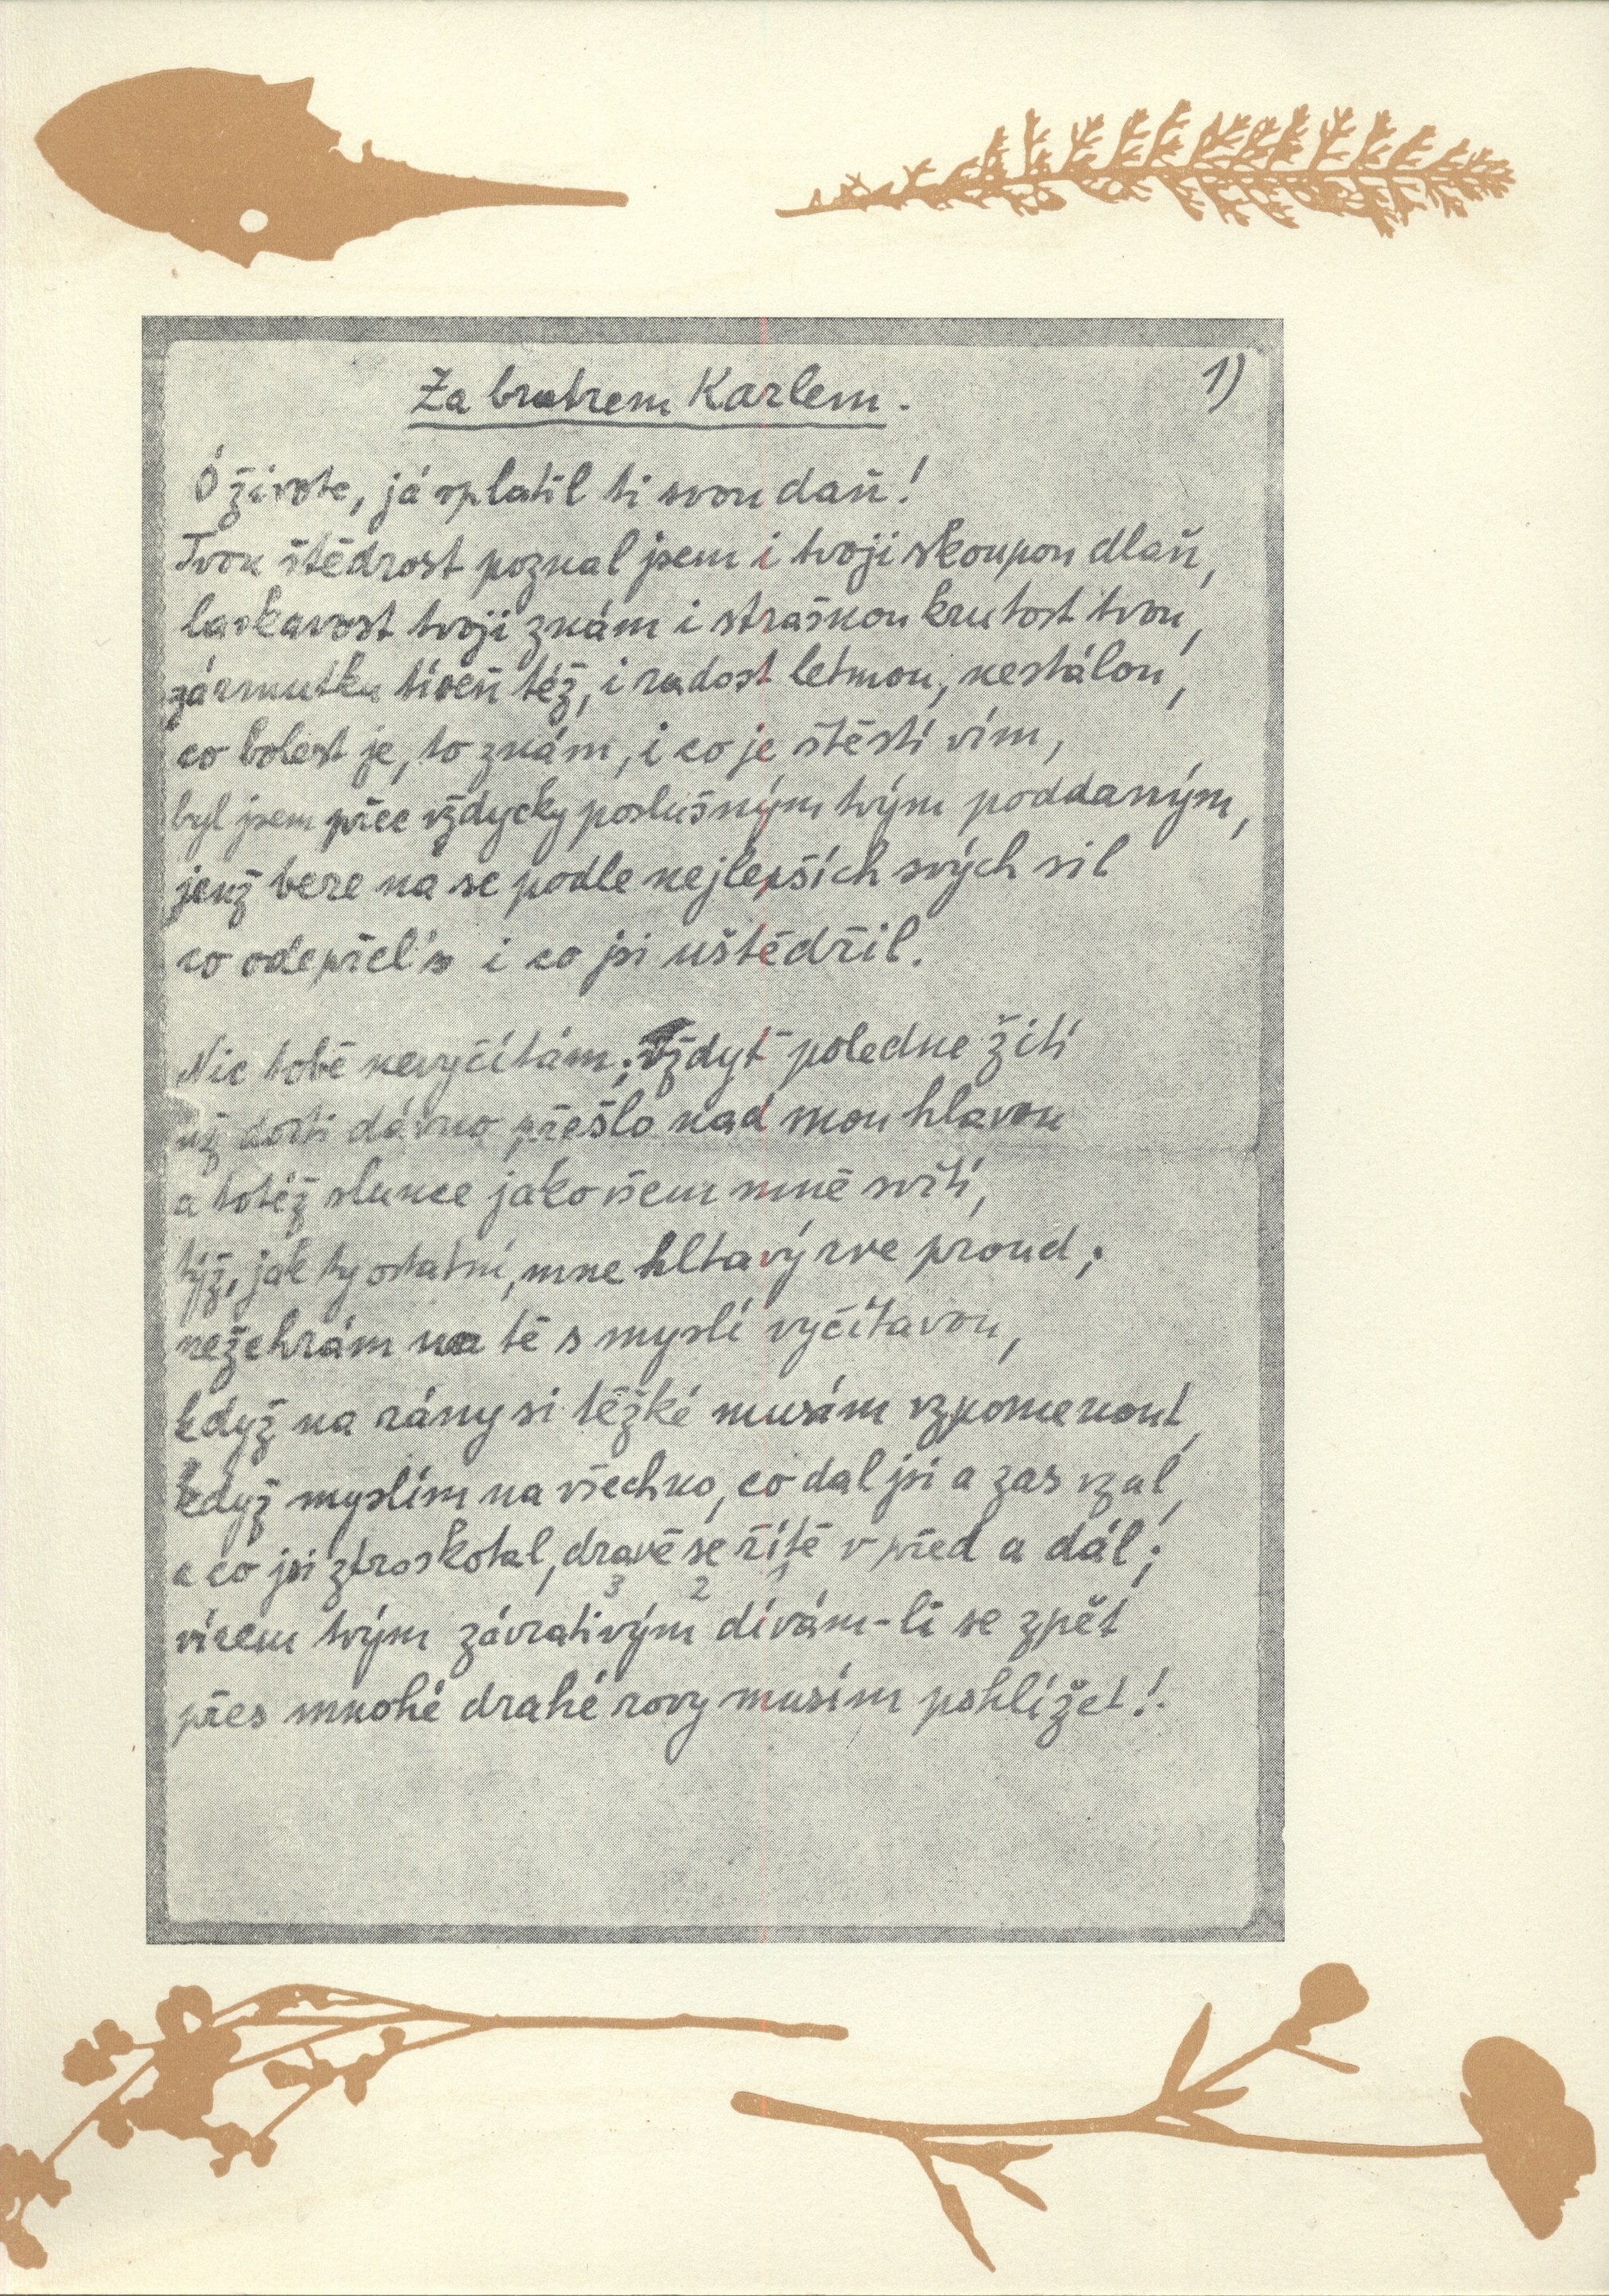 Za bratrem Karlem.
1)
Ó živote, já splatil ti svou daň!
Tvou štědrost poznal jsem i tvoji skoupou dlaň,
laskavost tvoji znám i strašnou krutost tvou,
zármutku tíseň též, i radost letmou, nestálou,
co bolest je, to znám, i co je štěstí vím,
byl jsem přec vždycky poslušným tvým poddaným,
jenž bere na se podle nejlepších svých sil
co odepřel's i co jsi uštědřil.
Nic tobě nevyčítám; vždyť poledne žití
už dosti dávno přešlo nad mou hlavou
a totéž slunce jako všem mně svítí,
týž, jak ty ostatní, mne hltavý rve proud;
nežehrám na tě s myslí vyčítavou,
když na rány si těžké musím vzpomenout,
když myslím na všechno, co dal jsi a zas vzal,
a co jsi ztroskotal, dravě se řítě v před a dál;
3 2 1
vírem tvým závrativým dívám-li se zpět
přes mnohé drahé rovy musím pohlížet!